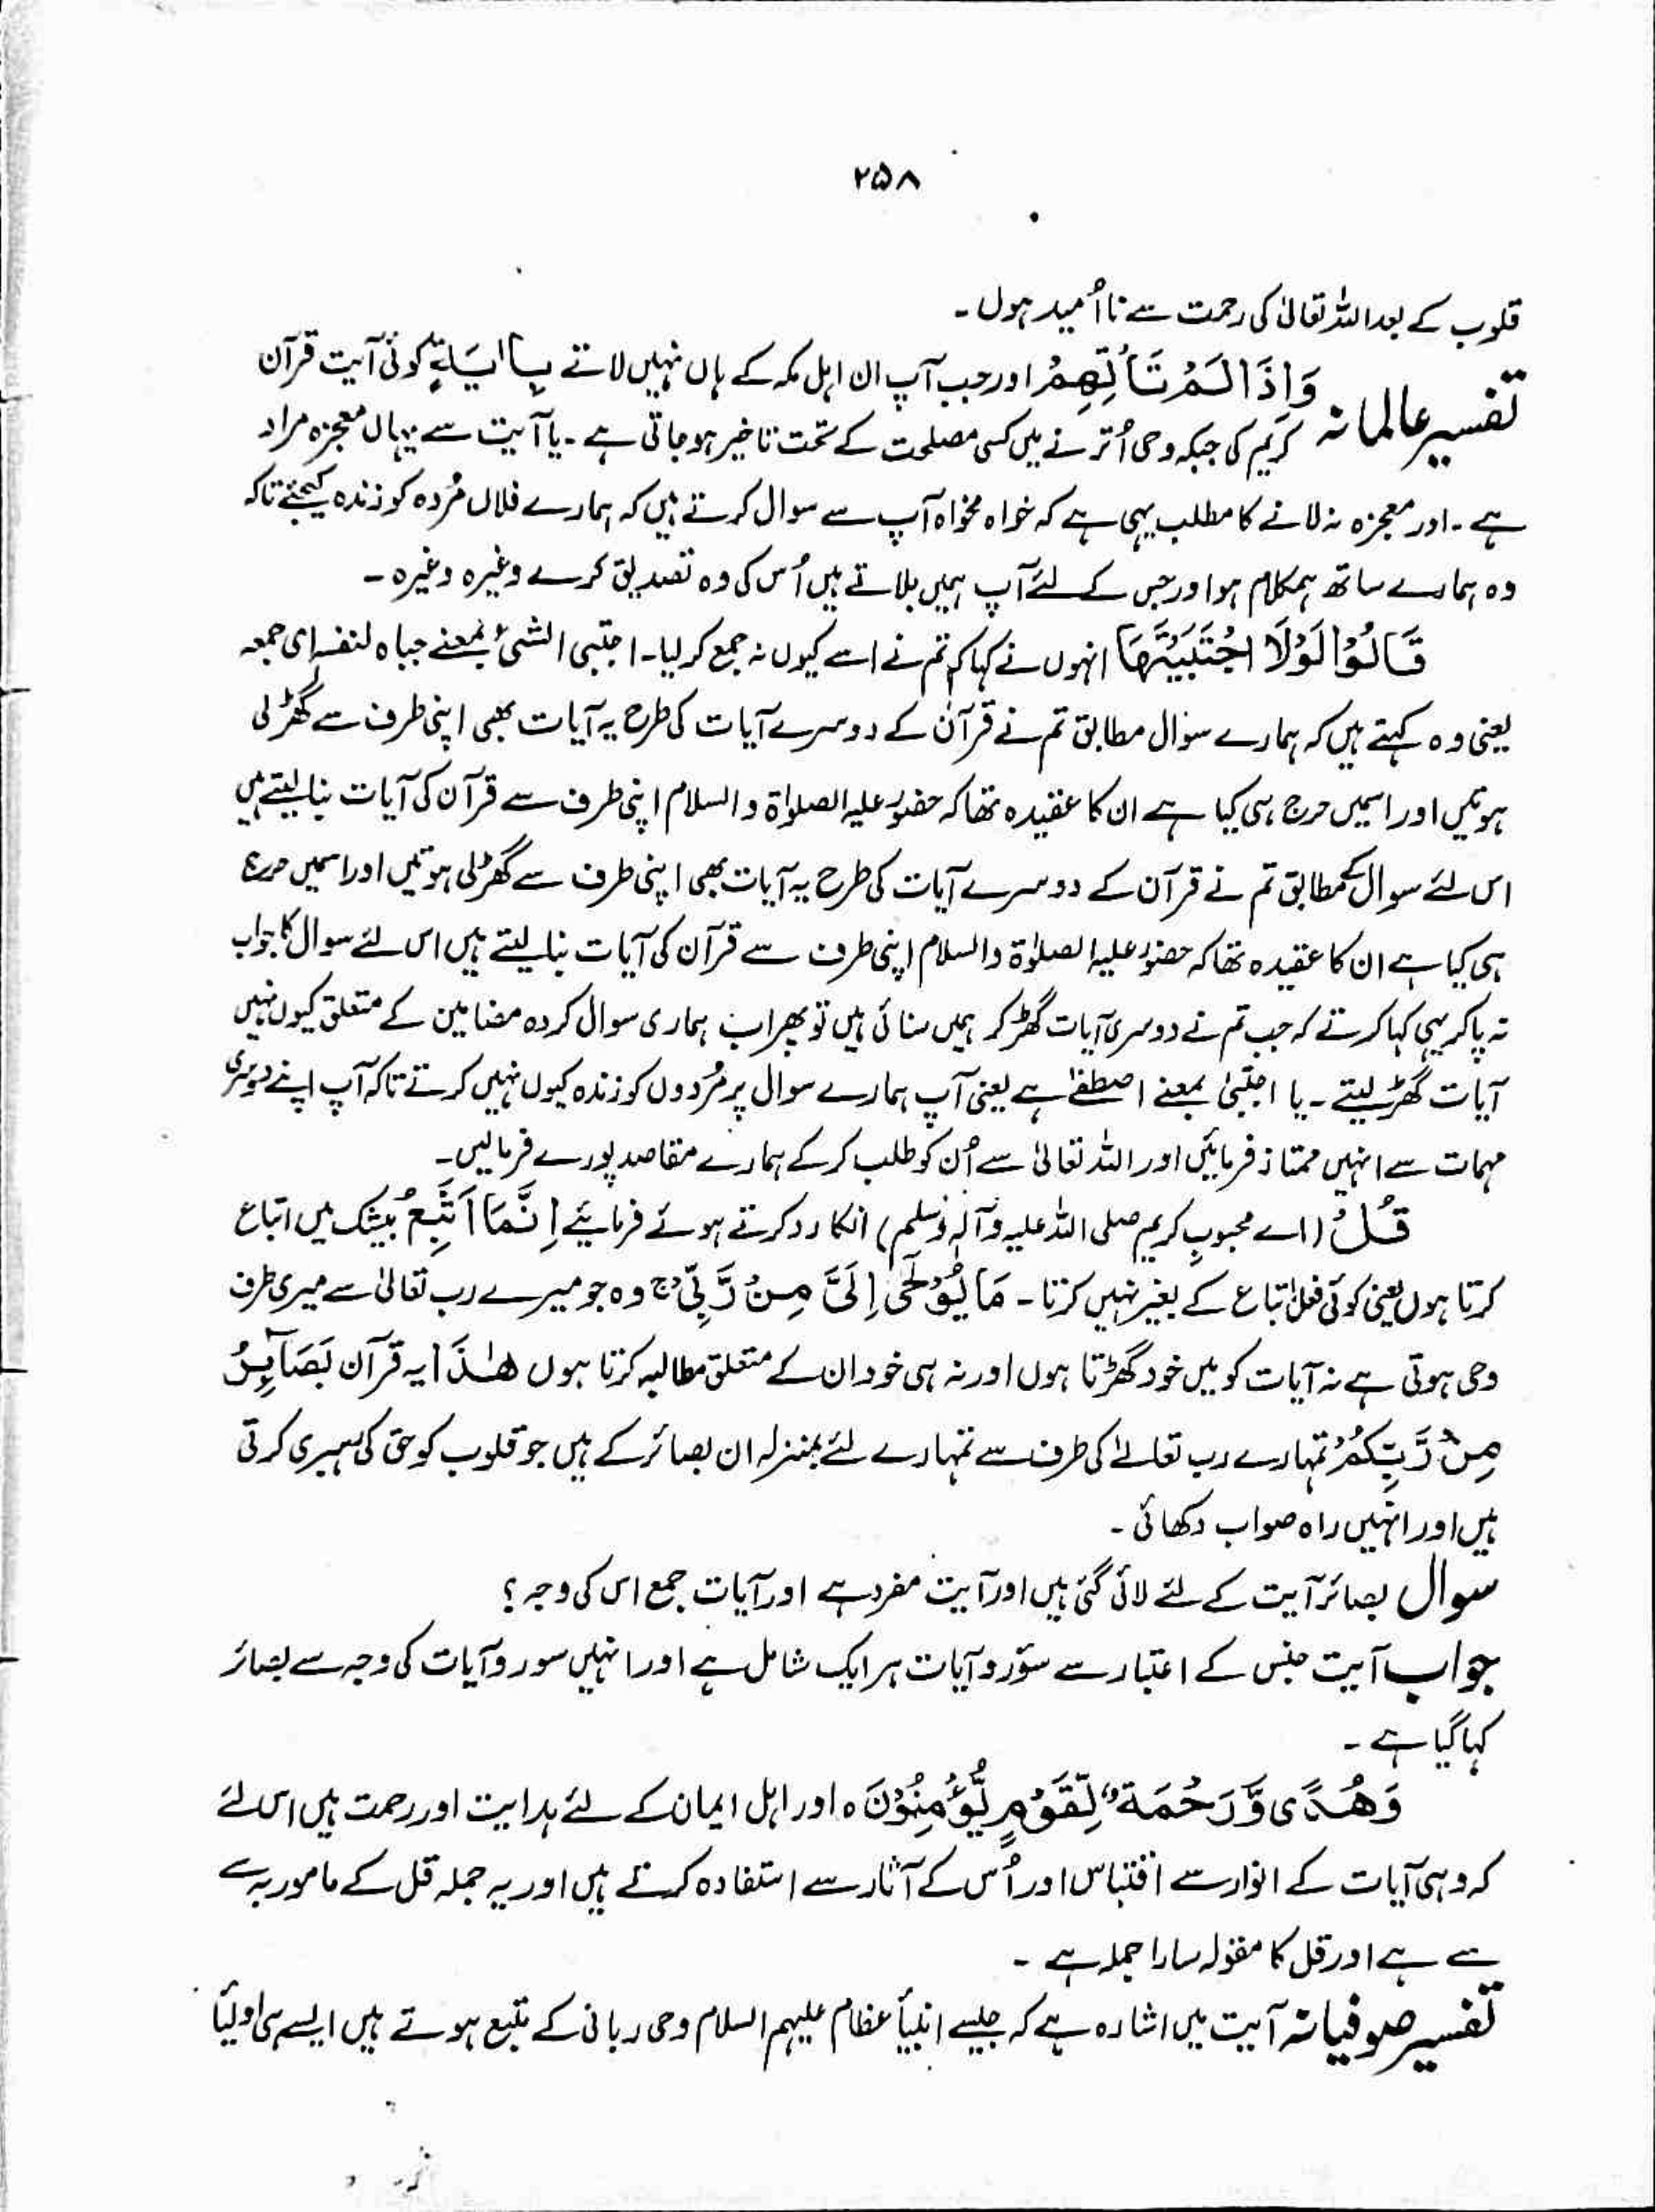 ۲۵۸
قلوب کے بعد اللہ تعالیٰ کی رحمت سے نا اُمید ہوں۔
تفسیر عالمانہ وَاِذَا لَمْ تَأْتِهِمْ اور جب آپ ان اہل مکہ کے ہاں نہیں لاتے بِاٰيَةٍ کوئی آیت قرآن
کریم کی جبکہ وحی اُترنے میں کسی مصلحت کے تحت تاخیر ہو جاتی ہے ۔ یا آیت سے یہاں معجزہ مراد
ہے ۔ اور معجزہ نہ لانے کا مطلب یہی ہے کہ خواہ مخواہ آپ سے سوال کرتے ہیں کہ ہمارے فلاں مُردہ کو زندہ کیجئے تاکہ
وہ ہمارے ساتھ ہمکلام ہو اور جس کے لئے آپ ہمیں بلاتے ہیں اُس کی وہ تصدیق کرے وغیرہ وغیرہ ۔
قَالُوْا لَوْلَا اجْتَبَيْتَهَا انہوں نے کہا کہ تم نے اسے کیوں نہ جمع کر لیا۔ اجتبی الشئ بمعنے جباہ لنفسہ ای جمعہ
یعنی وہ کہتے ہیں کہ ہمارے سوال مطابق تم نے قرآن کے دوسرے آیات کی طرح یہ آیات بھی اپنی طرف سے گھڑلی
ہوتیں اور اسمیں حرج ہی کیا ہے ان کا عقیدہ تھا کہ حضور علیہ الصلوٰۃ والسلام اپنی طرف سے قرآن کی آیات بنالیتے ہیں
اس لئے سوال کے مطابق تم نے قرآن کے دوسرے آیات کی طرح یہ آیات بھی اپنی طرف سے گھڑلی ہوتیں اور اسمیں حرج
ہی کیا ہے ان کا عقیدہ تھا کہ حضور علیہ الصلوٰۃ والسلام اپنی طرف سے قرآن کی آیات بنالیتے ہیں اس لئے سوال کا جواب
نہ پا کر یہی کہا کرتے کہ جب تم نے دوسری آیات گھڑ کر ہمیں سنائی ہیں تو پھر اب ہماری سوال کردہ مضامین کے متعلق کیوں نہیں
آیات گھڑ لیتے ۔ یا اجتبیٰ بمعنے اصطفےٰ ہے یعنی آپ ہمارے سوال پر مُردوں کو زندہ کیوں نہیں کرتے تاکہ آپ اپنے دوسری
مہمات سے انہیں ممتاز فرمائیں اور اللہ تعالیٰ سے اُن کو طلب کر کے ہمارے مقاصد پورے فرمالیں۔
قُلْ (اے محبوبِ کریم صلی اللہ علیہ وآلہٖ وسلم) انکا رد کرتے ہوئے فرمائیے اِنَّمَا اَتَّبِعُ بیشک میں اتباع
کرتا ہوں یعنی کوئی فعل اتباع کے بغیر نہیں کرتا ۔ مَا يُوْحٰى اِلَيَّ مِنْ رَّبِّيْ ج وہ جو میرے رب تعالیٰ سے میری طرف
وحی ہوتی ہے نہ آیات کو میں خود گھڑتا ہوں اور نہ ہی خود ان کے متعلق مطالبہ کرتا ہوں هٰذَا یہ قرآن بَصَآئِرُ
مِنْ رَّبِّكُمْ تمہارے رب تعالےٰ کی طرف سے تمہارے لئے بمنزلہ ان بصائر کے ہیں جو قلوب کو حق کی سیری کرتی
ہیں اور انہیں راہ صواب دکھائی ۔
سوال بصائر آیت کے لئے لائی گئی ہیں اور آیت مفرد ہے اور آیات جمع اس کی وجہ ؟
جواب آیت جنس کے اعتبار سے سوَر و آیات ہر ایک شامل ہے اور انہیں سور و آیات کی وجہ سے بصائر
کہا گیا ہے ۔
وَهُدًى وَّرَحْمَةٌ لِّقَوْمٍ يُّؤْمِنُوْنَ ہ اور اہل ایمان کے لئے ہدایت اور رحمت ہیں اس لئے
کہ وہی آیات کے انوار سے اقتباس اور اُس کے آثار سے استفادہ کرتے ہیں اور یہ جملہ قل کے مامور بہٖ
سے ہے اور قل کا مقولہ سارا جملہ ہے ۔
تفسیر صوفیانہ آیت میں اشارہ ہے کہ جیسے انبیأ عظام علیہم السلام وحی ربانی کے متبع ہوتے ہیں ایسے ہی اولیأ